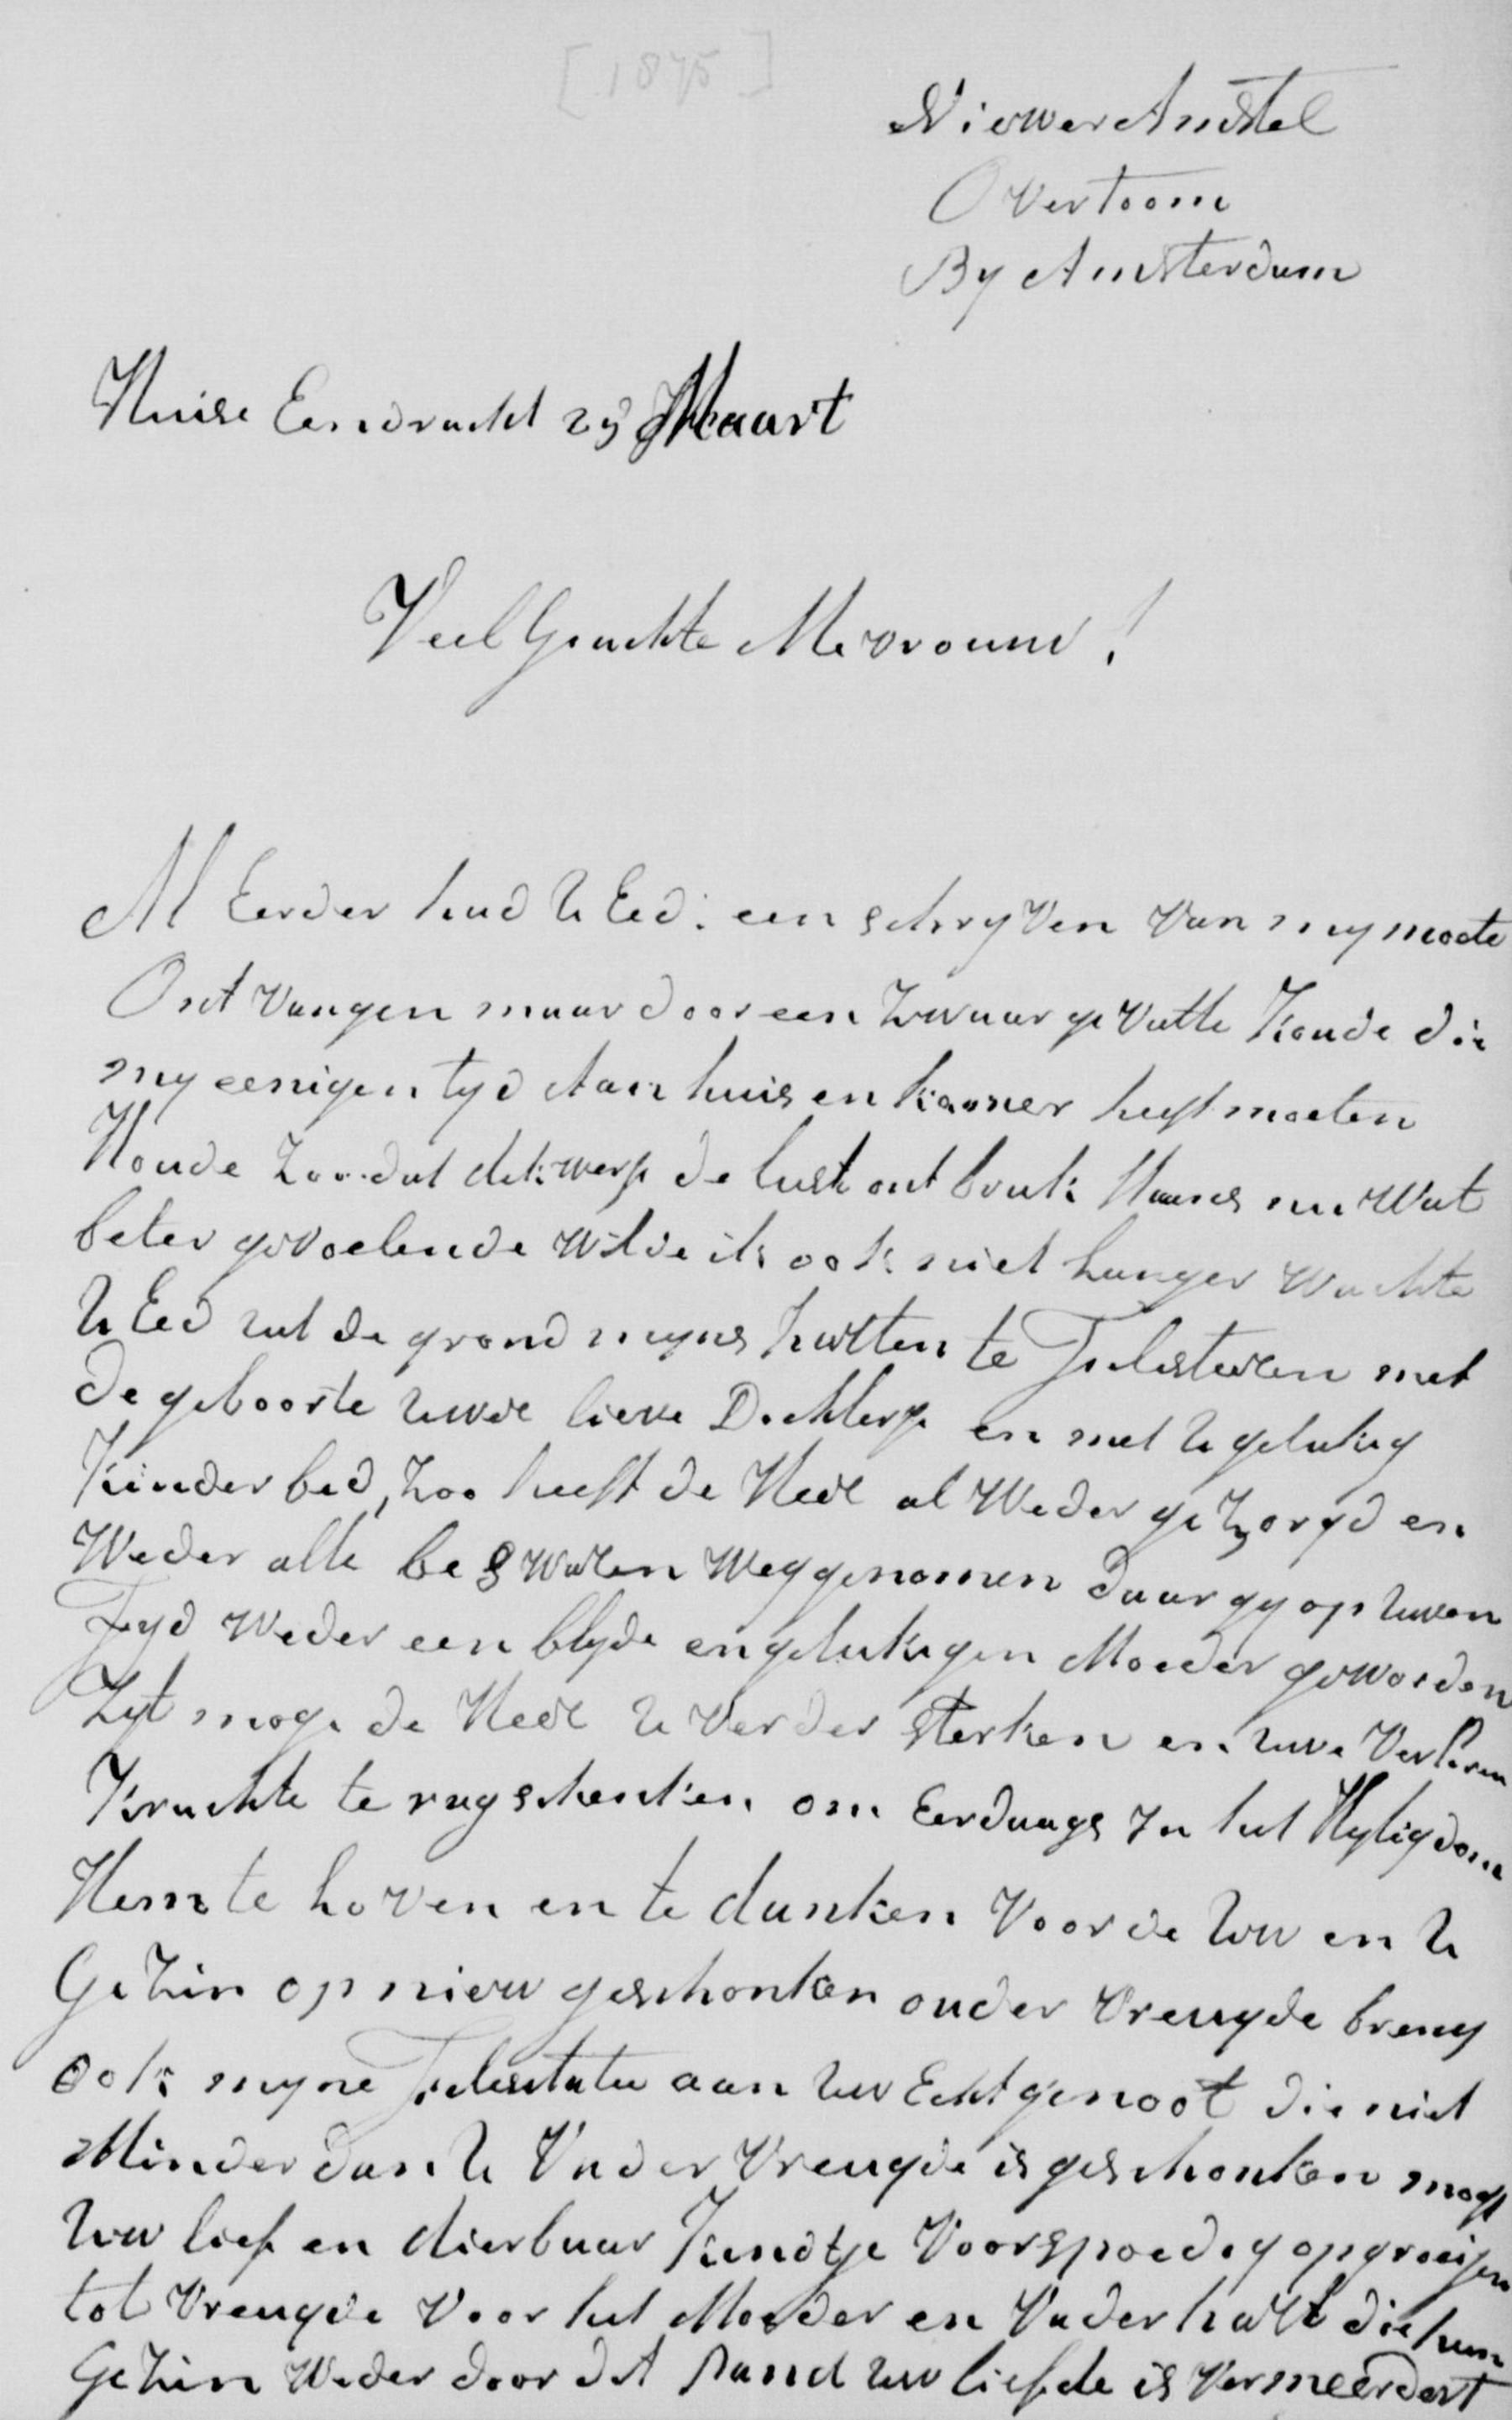 [1875]
Niewer Amstel
Overtoom
By Amsterdam
Huise Eendracht 25 Maart
Veel Geachte Mevrouw!
Al Eerder had U Ed: een schryven van my moete
Ont vangen maar door een zwaar ge vatte Koude die
my eenigen tyd Aan huis en kamer heeft moeten
Houde zoo dat dikwerf de lust ont brak thans nu wat
beter gevoelende wilde ik ook niet langer wachte
U Eed uit de grond myns hartten te Felisteeren met
de geboorte uwer lieve Dochterje en met U gelukig
Kinder bed, zoo heeft de Heer al Weder ge zorgd en
Weder alle be swaren weggenomen daar gy op uwen
Tyd weder een blyde en gelukigen Moeder geworden
Zyt moge de Heer U verder sterken en uwe Verloren
Krachte te rug schenken om Eerdaags In het Hyligdom
Hem te loven en te danken voor de Uw en U
Gezin op nieuw geschonken ouder vreugde breng
ook myne Felisitatie aan Uw Echtgenoot die niet
Minder dan U Vader Vreugde is geschonken mogt
Uw lief en dierbaar Kindtje Voorspoedig opgroeijen
tot Vreugde Voor het Moeder en Vader hart die hun
Gezin Weder door dit Pand uw liefde is Vermeerdert